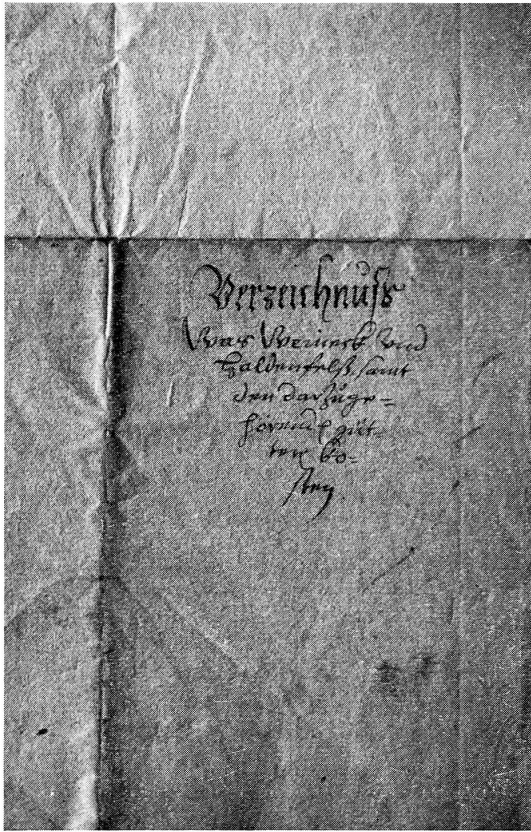 Verzeichnuss
Was Weineck und
Haldenfelß, samt
den darzuge-
hörend güt-
tern ko-
sten